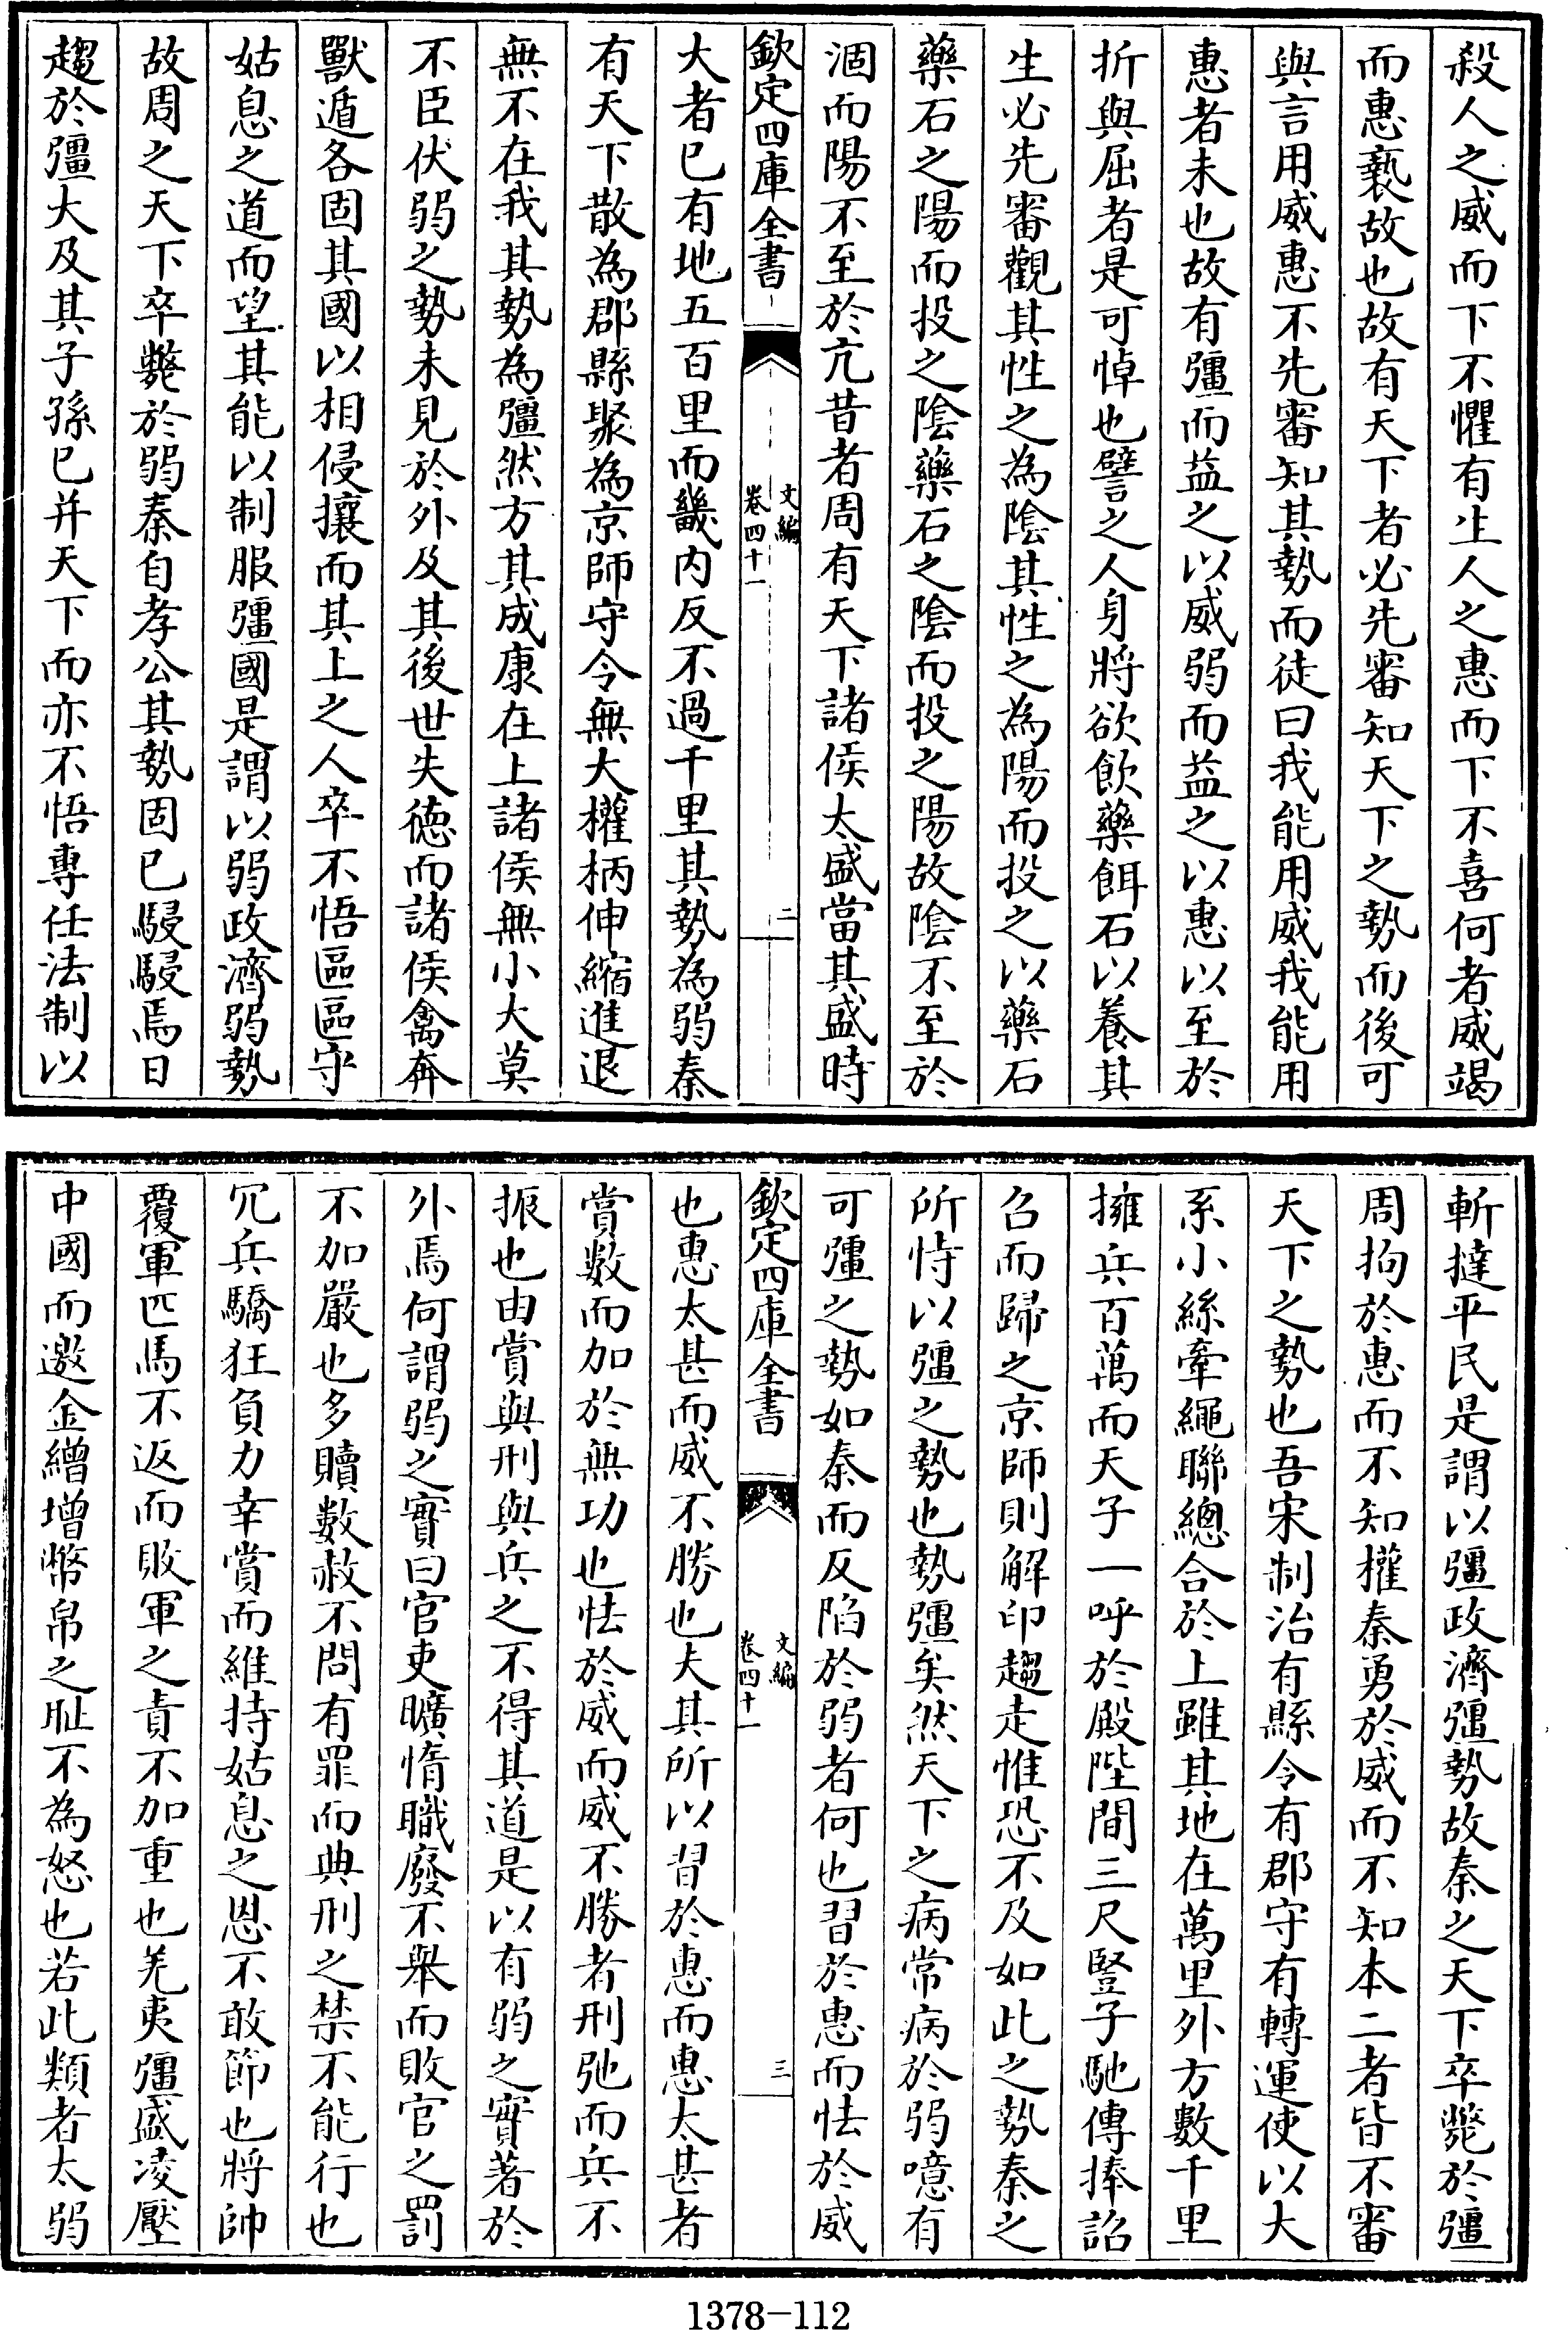 殺人之威而下不懼有生人之惠而下不喜何者威竭
而惠褻故也故有天下者必先審知天下之勢而後可
與言用威惠不先審知其勢而徒曰我能用威我能用
惠者未也故有彊而益之以威弱而益之以惠以至於
折與屈者是可悼也譬之人身將欲飲藥餌石以養其
生必先審觀其性之為陰其性之為陽而投之以藥石
藥石之陽而投之陰藥石之陰而投之陽故陰不至於
涸而陽不至於亢昔者周有天下諸侯太盛當其盛時
欽定四庫全書
文編
卷四十一
二
大者已有地五百里而畿内反不過千里其勢為弱秦
有天下散為郡縣聚為京師守令無大權柄伸縮進退
無不在我其勢為彊然方其成康在上諸侯無小大莫
不臣伏弱之勢未見於外及其後世失徳而諸侯禽奔
獸遁各固其國以相侵攘而其上之人卒不悟區區守
姑息之道而望其能以制服彊國是謂以弱政濟弱勢
故周之天下卒斃於弱秦自孝公其勢固已駸駸焉日
趨於彊大及其子孫已并天下而亦不悟專任法制以
斬撻平民是謂以彊政濟彊勢故秦之天下卒斃於彊
周拘於惠而不知權秦勇於威而不知本二者皆不審
天下之勢也吾宋制治有縣令有郡守有轉運使以大
系小絲牽繩聯總合於上雖其地在萬里外方數千里
擁兵百萬而天子一呼於殿陛間三尺豎子馳傳捧詔
召而歸之京師則解印趨走惟恐不及如此之勢秦之
所恃以彊之勢也勢彊矣然天下之病常病於弱噫有
可彊之勢如秦而反陷於弱者何也習於惠而怯於威
欽定四庫全書
文編
卷四十一
三
也惠太甚而威不勝也夫其所以習於惠而惠太甚者
賞數而加於無功也怯於威而威不勝者刑弛而兵不
振也由賞與刑與兵之不得其道是以有弱之實著於
外焉何謂弱之實曰官吏曠惰職廢不舉而敗官之罰
不加嚴也多贖數赦不問有罪而典刑之禁不能行也
冗兵驕狂負力幸賞而維持姑息之恩不敢節也將帥
覆軍匹馬不返而敗軍之責不加重也羌夷彊盛凌壓
中國而邀金繒增幣帛之恥不為怒也若此類者太弱
1378-112